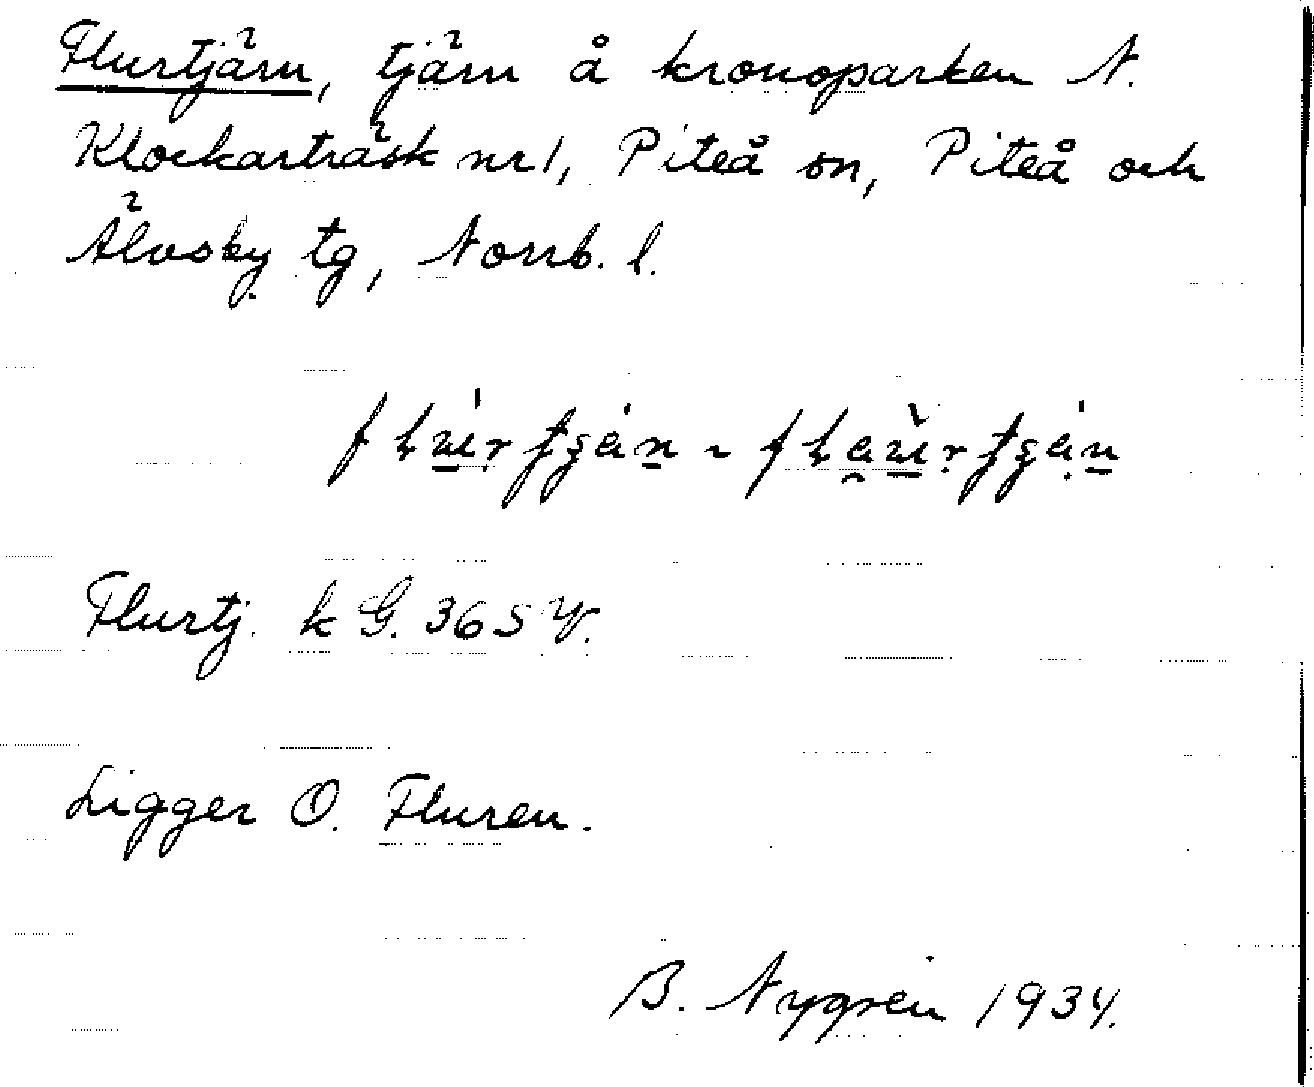 Flurtjärn, tjärn å kronoparken N.
Klockarträsk nr 1, Piteå sn, Piteå och
Älvsby tg, Norrb. l.
Flurtj. k G. 365 V.
Ligger O. Fluren.
B. Nygren 1934.